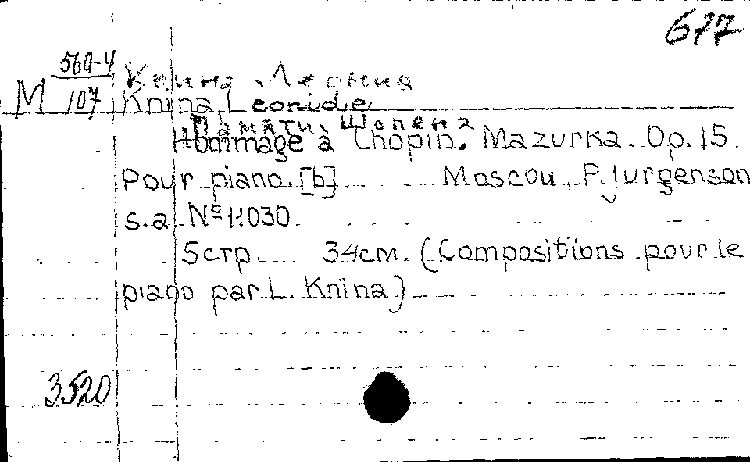 677
М 560-4
107
Книна, Леонид
Knina, Leonide
Памяти Шопена
Hommage à Chopin. Mazurka. Op. 15.
Pour piano. [b] Moscou, P. Jurgenson
s.a. № 11030.
5стр 34см. (Compositions pour le
piano par L. Knina)
3520